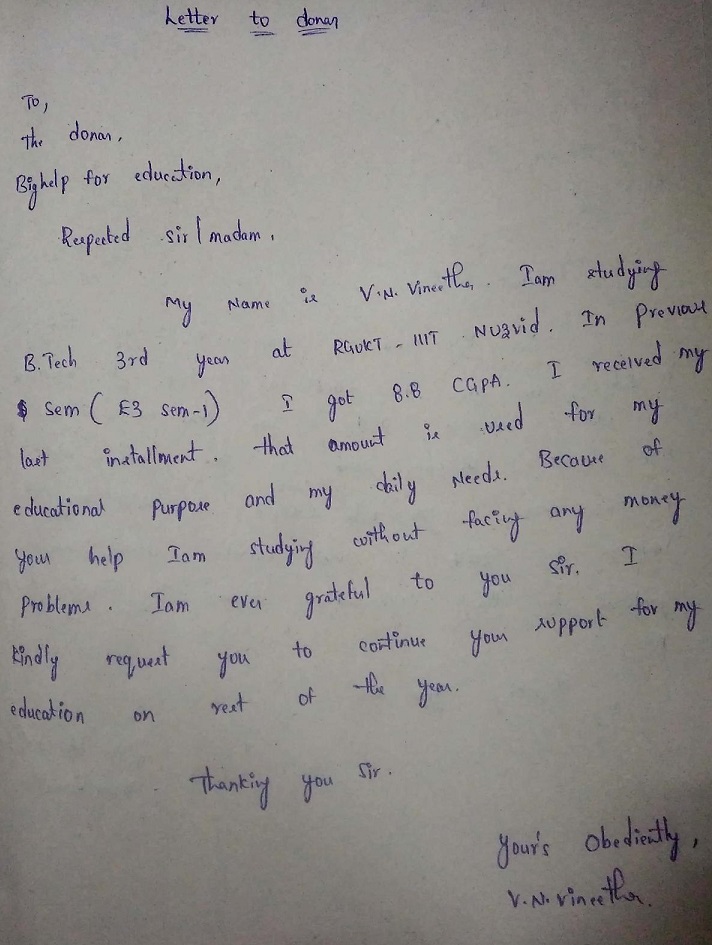 Letter to donar
To,
the donar,
Bighelp for education,
Respected sir/madam,
My Name is V.N. Vineetha. Iam studying
B.Tech 3rd year at RGUKT - IIIT Nuzvid. In Previous
sem ( E3 sem-1) I got 8.8 CGPA. I received my
last installment. that amount is used for my
educational purpose and my daily Needs. Because of
your help Iam studying without facing any money
Problems. Iam ever grateful to you Sir. I
kindly request you to continue your support for my
education on rest of the year.
Thanking you Sir.
your's Obediently,
V.N. Vineetha.